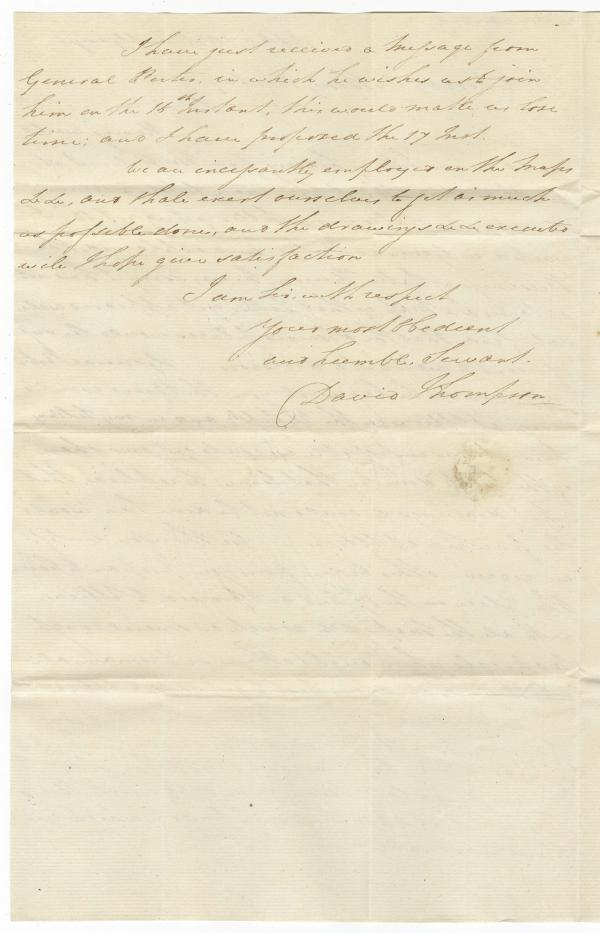 I have just received a Message from
General Porter, in which he wishes us to join
him on the 14th Instant, this would make us lose
time; and I have proposed the 17 Inst.
We are incessantly employed on the Maps
&c &c, and shall exert ourselves to get as much
as possible done, and the drawings &c &c executed
will I hope give satisfaction
I am Sir with respect
Your most Obedient
and humble Servant.
David Thompson